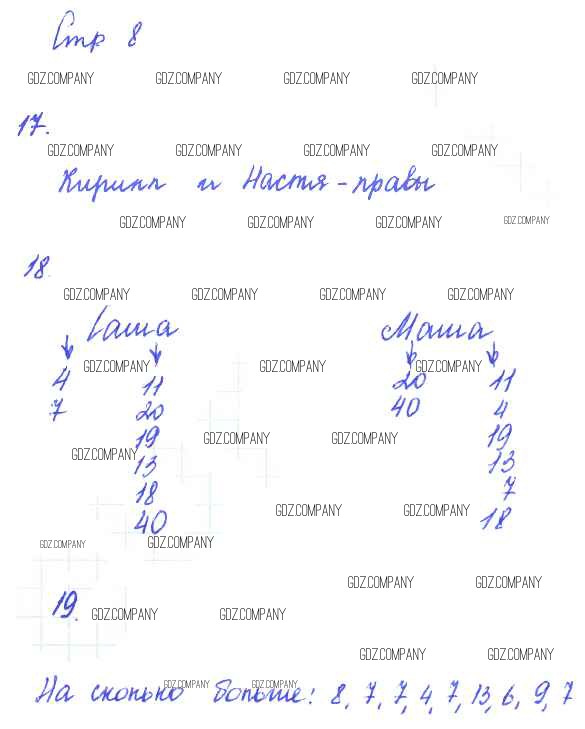 Стр 8
GDZ.COMPANY GDZ.COMPANY GDZ.COMPANY GDZ.COMPANY
17.
GDZ.COMPANY GDZ.COMPANY GDZ.COMPANY GDZ.COMPANY
Кирилл и Настя - правы
GDZ.COMPANY GDZ.COMPANY GDZ.COMPANY GDZ.COMPANY
18.
GDZ.COMPANY GDZ.COMPANY GDZ.COMPANY GDZ.COMPANY
Саша Маша
GDZ.COMPANY GDZ.COMPANY GDZ.COMPANY
4 11 20 11
7 20 40 4
19 GDZ.COMPANY GDZ.COMPANY 19
GDZ.COMPANY 13 13
18 7
GDZ.COMPANY GDZ.COMPANY
40 18
GDZ.COMPANY GDZ.COMPANY
GDZ.COMPANY GDZ.COMPANY
19. GDZ.COMPANY GDZ.COMPANY
GDZ.COMPANY GDZ.COMPANY
GDZ.COMPANY GDZ.COMPANY
На сколько больше: 8, 7, 7, 4, 7, 13, 6, 9, 7